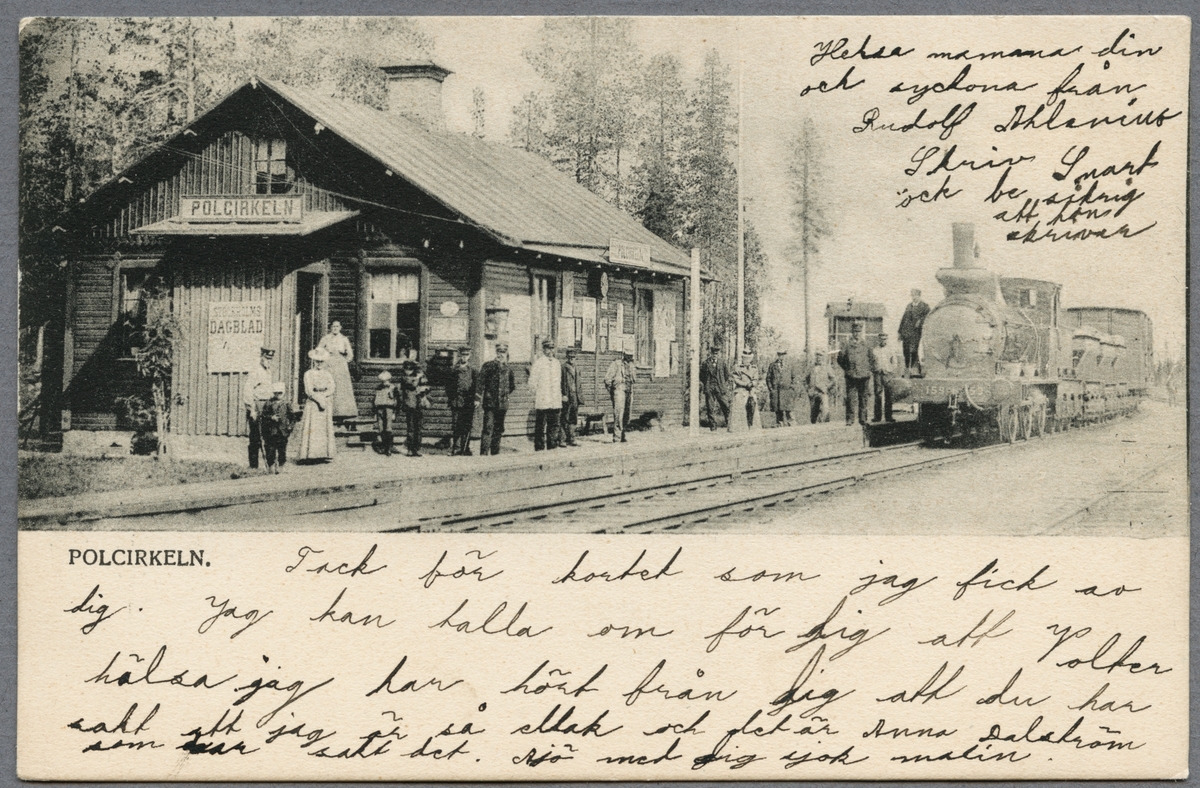 Helsa mamma din
och syckona från
Rudolf Ahlenius
Skriv Snart
ock be
att hon
skrivar
POLCIRKELN
POLCIRKELN
STOCKHOLMS
DAGBLAD
POLCIRKELN.
Tack för kortet som jag fick av
dig. Jag kan talla om för dig att
hälsa jag har hört från dig att du har
sakt att jag är så ellak och det är Anna Dalström
som har sakt det. Ajö med dig